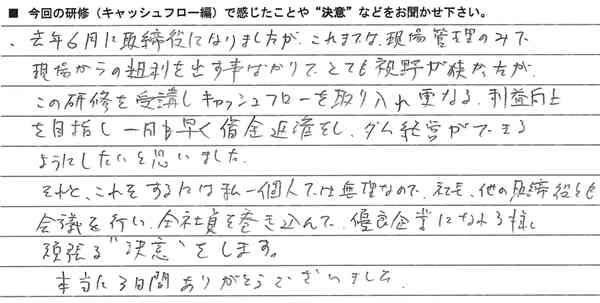 ■ 今回の研修（キャッシュフロー編）で感じたことや“決意”などをお聞かせ下さい。
、去年6月に取締役になりましたが、これまでは、現場管理のみで
現場からの粗利を出す事ばかりで、とても視野が狭かったが、
この研修を受講しキャッシュフローを取り入れ更なる、利益向上
を目指し一日も早く借金返済をし、ダム経営ができる
ようにしたいと思いました。
それと、これをするには私一個人では無理なので、社長、他の取締役とも
会議を行い、全社員を巻き込んで、優良企業になれる様に
頑張る“決意”をします。
本当に3日間ありがとうございました。